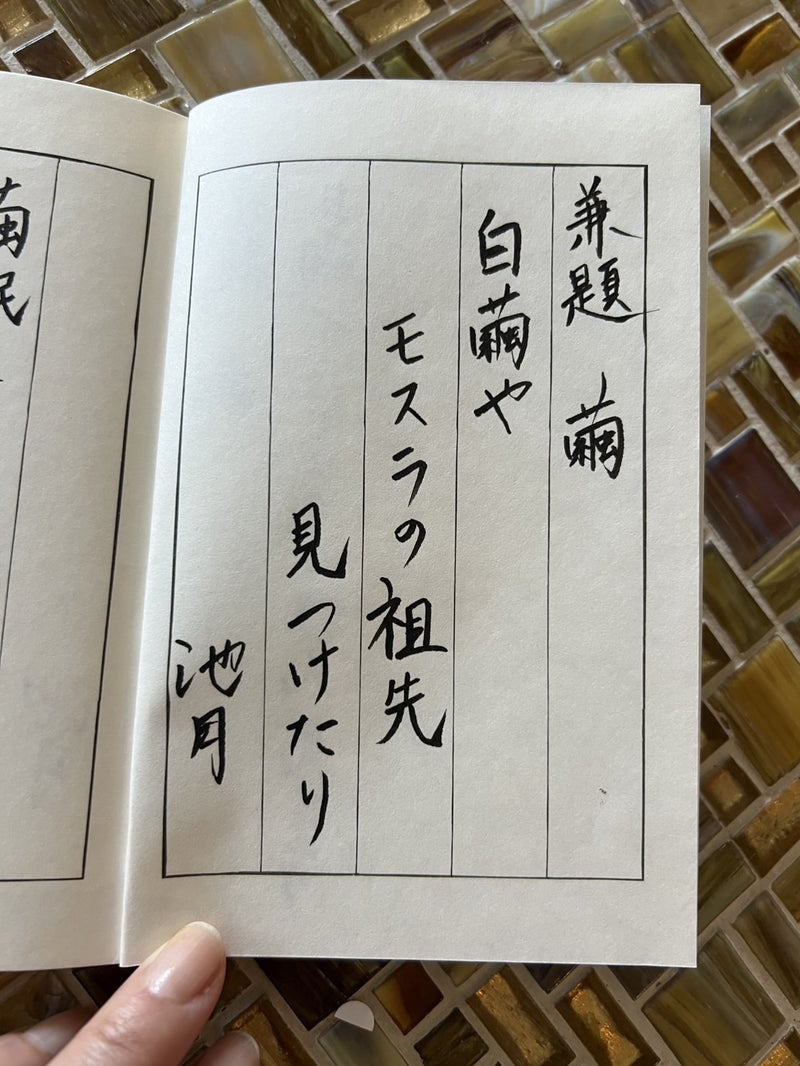 兼題 繭
白繭や
モスラの祖先
見つけたり
池月
繭